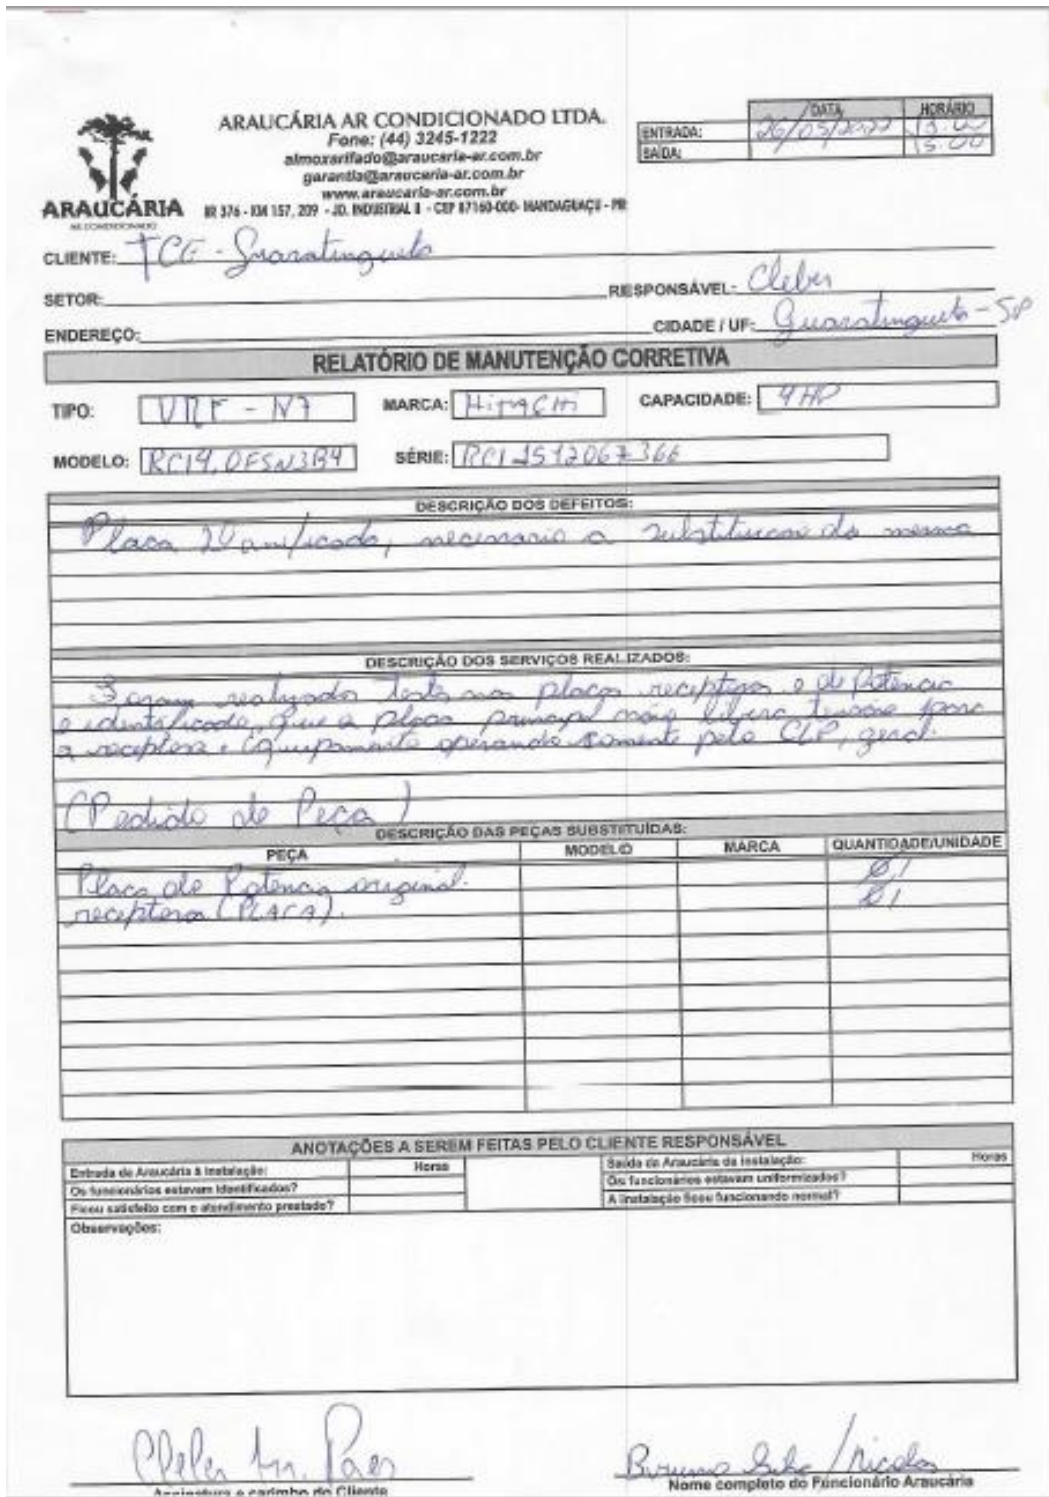 ARAUCÁRIA AR CONDICIONADO LTDA.
Fone: (44) 3245-1222
almoxarifado@araucaria-ar.com.br
garantia@araucaria-ar.com.br
www.araucaria-ar.com.br
BR 376 - KM 157, 209 - JD. INDUSTRIAL II - CEP 87160-000- MANDAGUAÇU - PR
ARAUCÁRIA
AR CONDICIONADO
DATA HORÁRIO
ENTRADA: 26/05/2022
SAÍDA: 15:00
CLIENTE: TCE - Guaratingueta
SETOR: RESPONSÁVEL: Cleber
ENDEREÇO: CIDADE / UF: Guaratingueta - SP
RELATÓRIO DE MANUTENÇÃO CORRETIVA
TIPO: VRF - N7 MARCA: HITACHI CAPACIDADE: 4 HP
MODELO: RCI4,0FSN3B4 SÉRIE: RCI 1512067366
DESCRIÇÃO DOS DEFEITOS:
Placa Danificado, necessario a substituicao da mesma
DESCRIÇÃO DOS SERVIÇOS REALIZADOS:
Foram realizado teste nas placas receptora e de Potencia
e identificado, que a placa principal não libera tensão para
a receptora. Equipamento operando somente pelo CLP, geral.
(Pedido de Peça)
DESCRIÇÃO DAS PEÇAS SUBSTITUÍDAS:
PEÇA MODELO MARCA QUANTIDADE/UNIDADE
Placa de Potencia original. 01
receptora (PLACA). 01
ANOTAÇÕES A SEREM FEITAS PELO CLIENTE RESPONSÁVEL
Entrada da Araucária à instalação: Horas Saída da Araucária da instalação: Horas
Os funcionários estavam identificados? Os funcionários estavam uniformizados?
Ficou satisfeito com o atendimento prestado? A instalação ficou funcionando normal?
Observações:
Cleber M. Paes Bruno Silva / Nicolas
Assinatura e carimbo do Cliente Nome completo do Funcionário Araucária